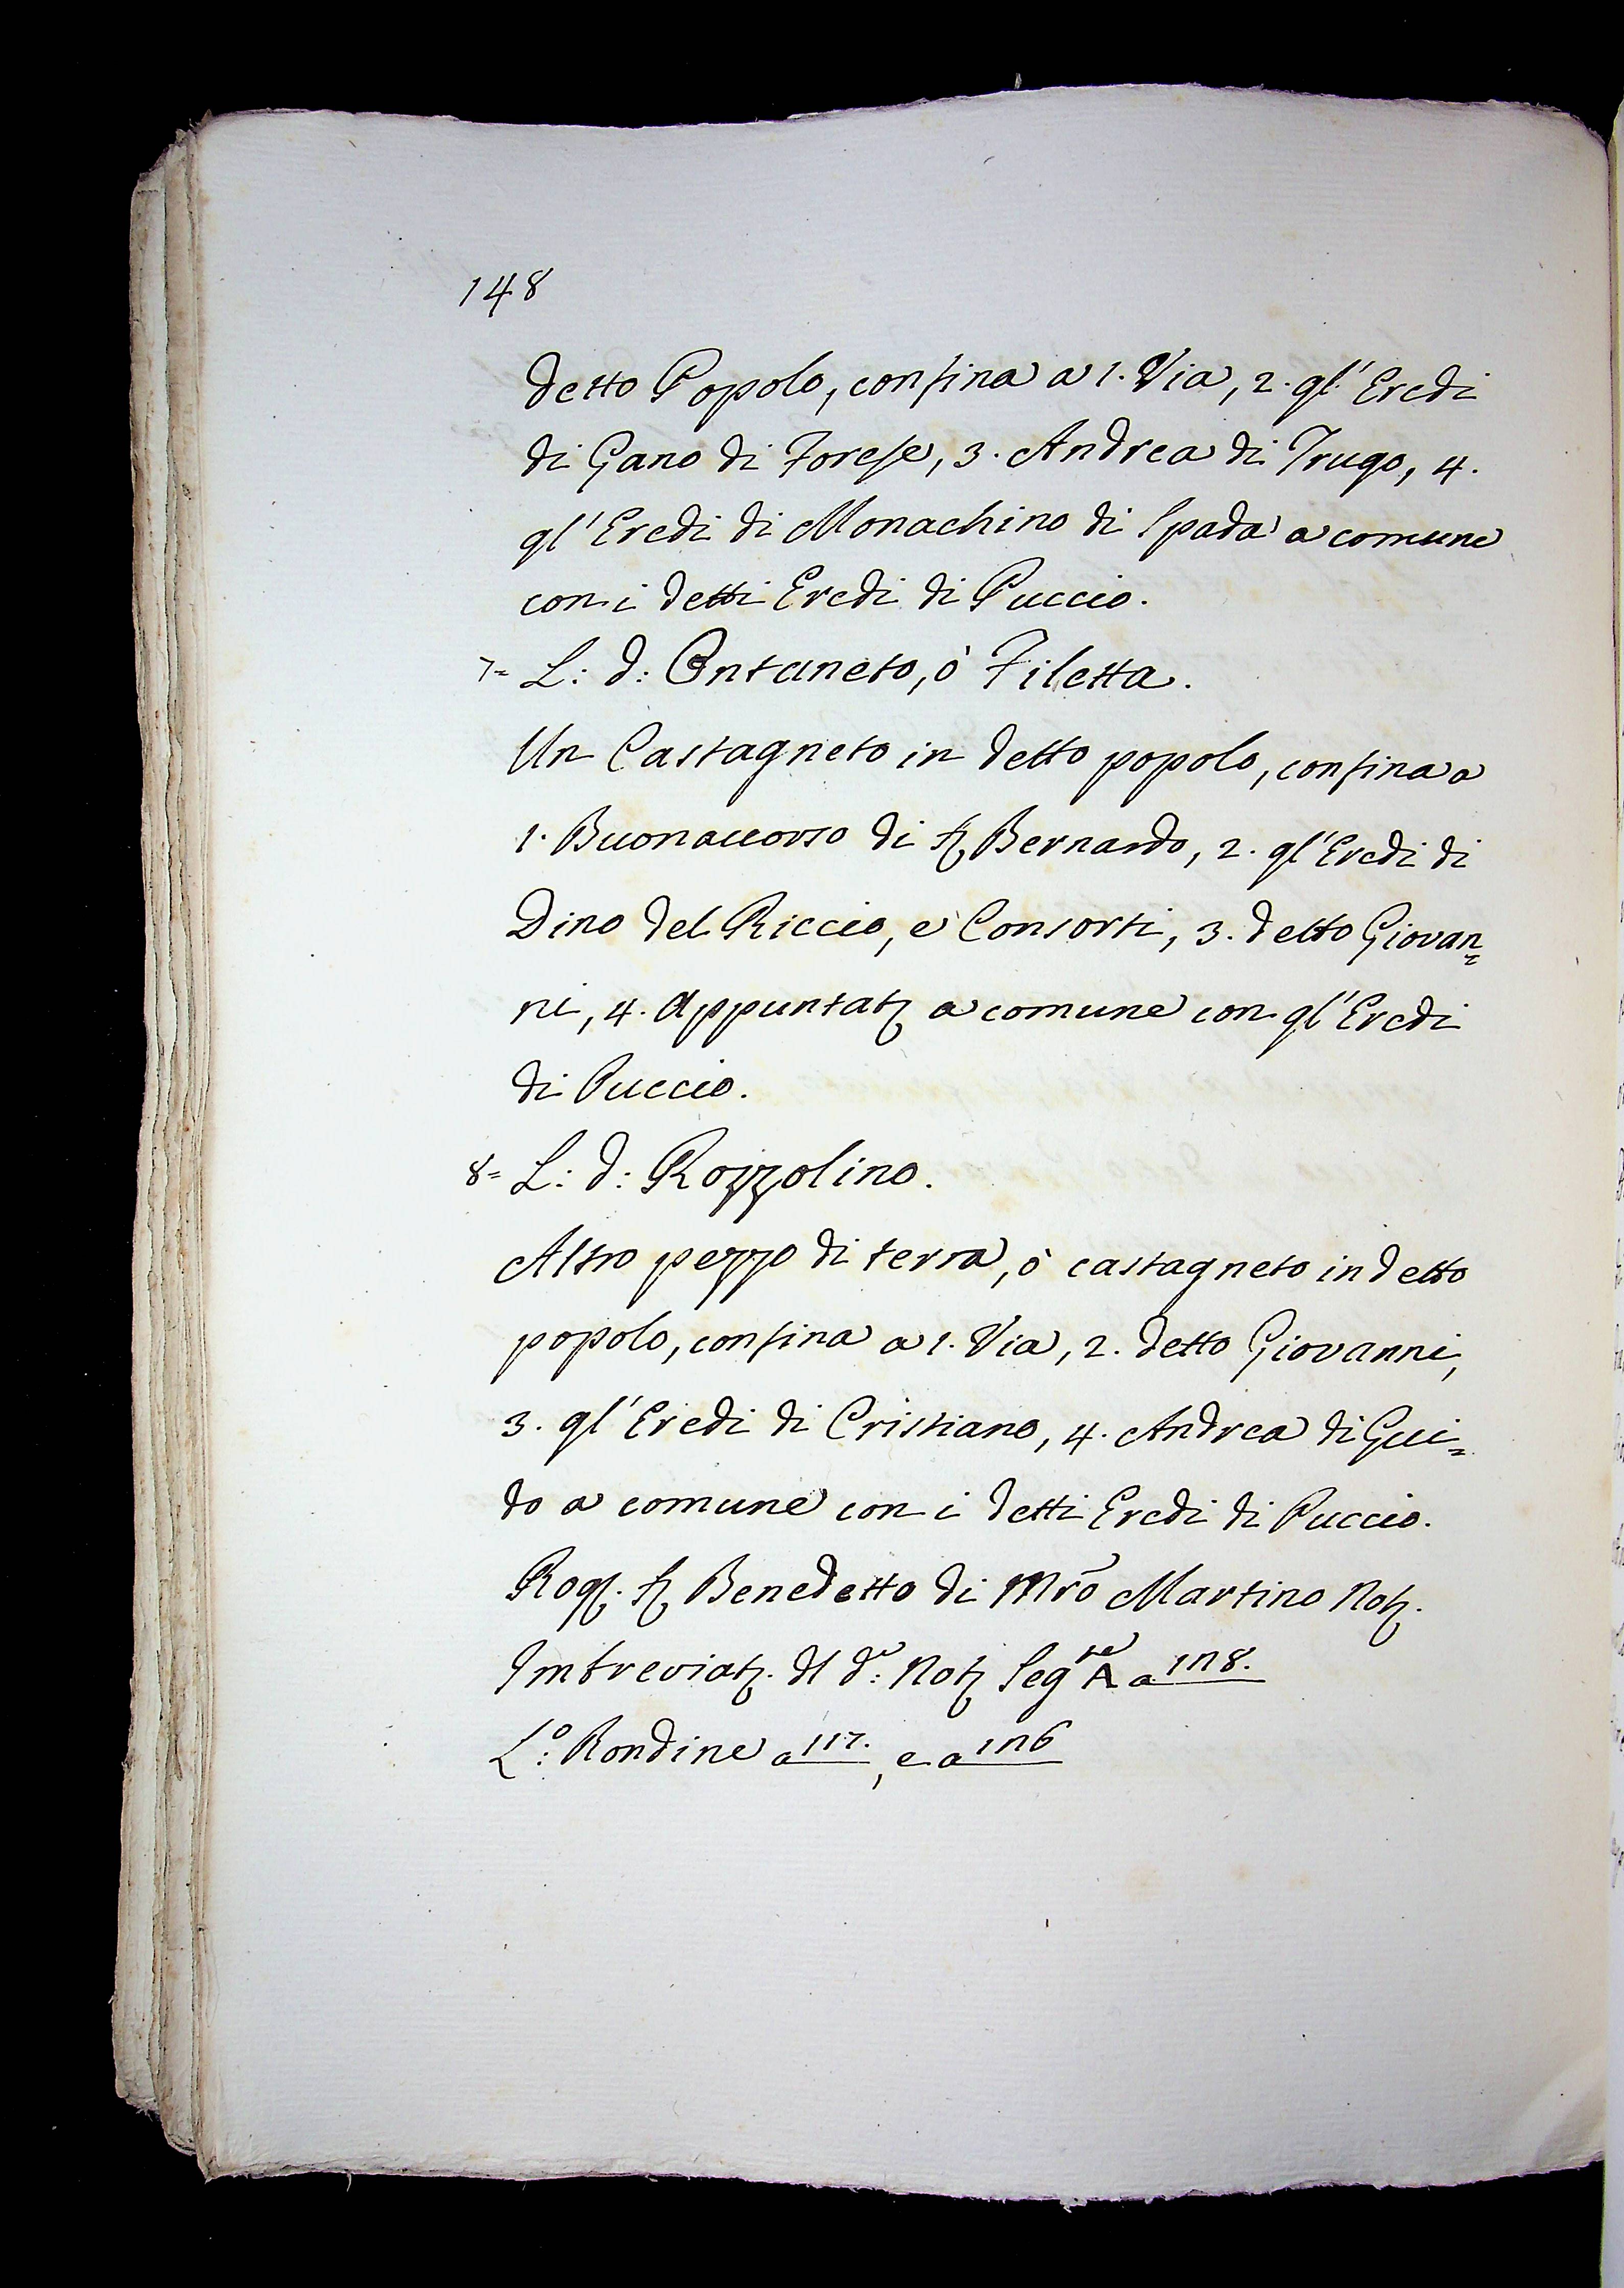 148
detto Popolo, confina a 1. Via, 2. gl' Eredi
di Gano di Forese, 3. Andrea di Trugo, 4.
gl' Eredi di Monachino di Spada a comune
con i detti Eredi di Puccio.
7= L: d: Ontaneto, ò Filetta.
Un Castagneto in detto popolo, confina a
1. Buonaccorso di Bernardo, 2. gl' Eredi di
Dino del Riccio, e Consorti, 3. detto Giovan=
ni, 4. appuntat. a comune con gl' Eredi
di Puccio.
8= L: d: Rozzolino.
Altro pezzo di terra, ò castagneto in detto
popolo, confina a 1. Via, 2. detto Giovanni,
3. gl' Eredi di Cristiano, 4. Andrea di Gui=
do a comune con i detti Eredi di Puccio.
Rog. Benedetto di Mrõ Martino Not.
Imbreviat. dl d.o: Not Seg.te A a 178.
L.o: Rondine a 117. , e a 176